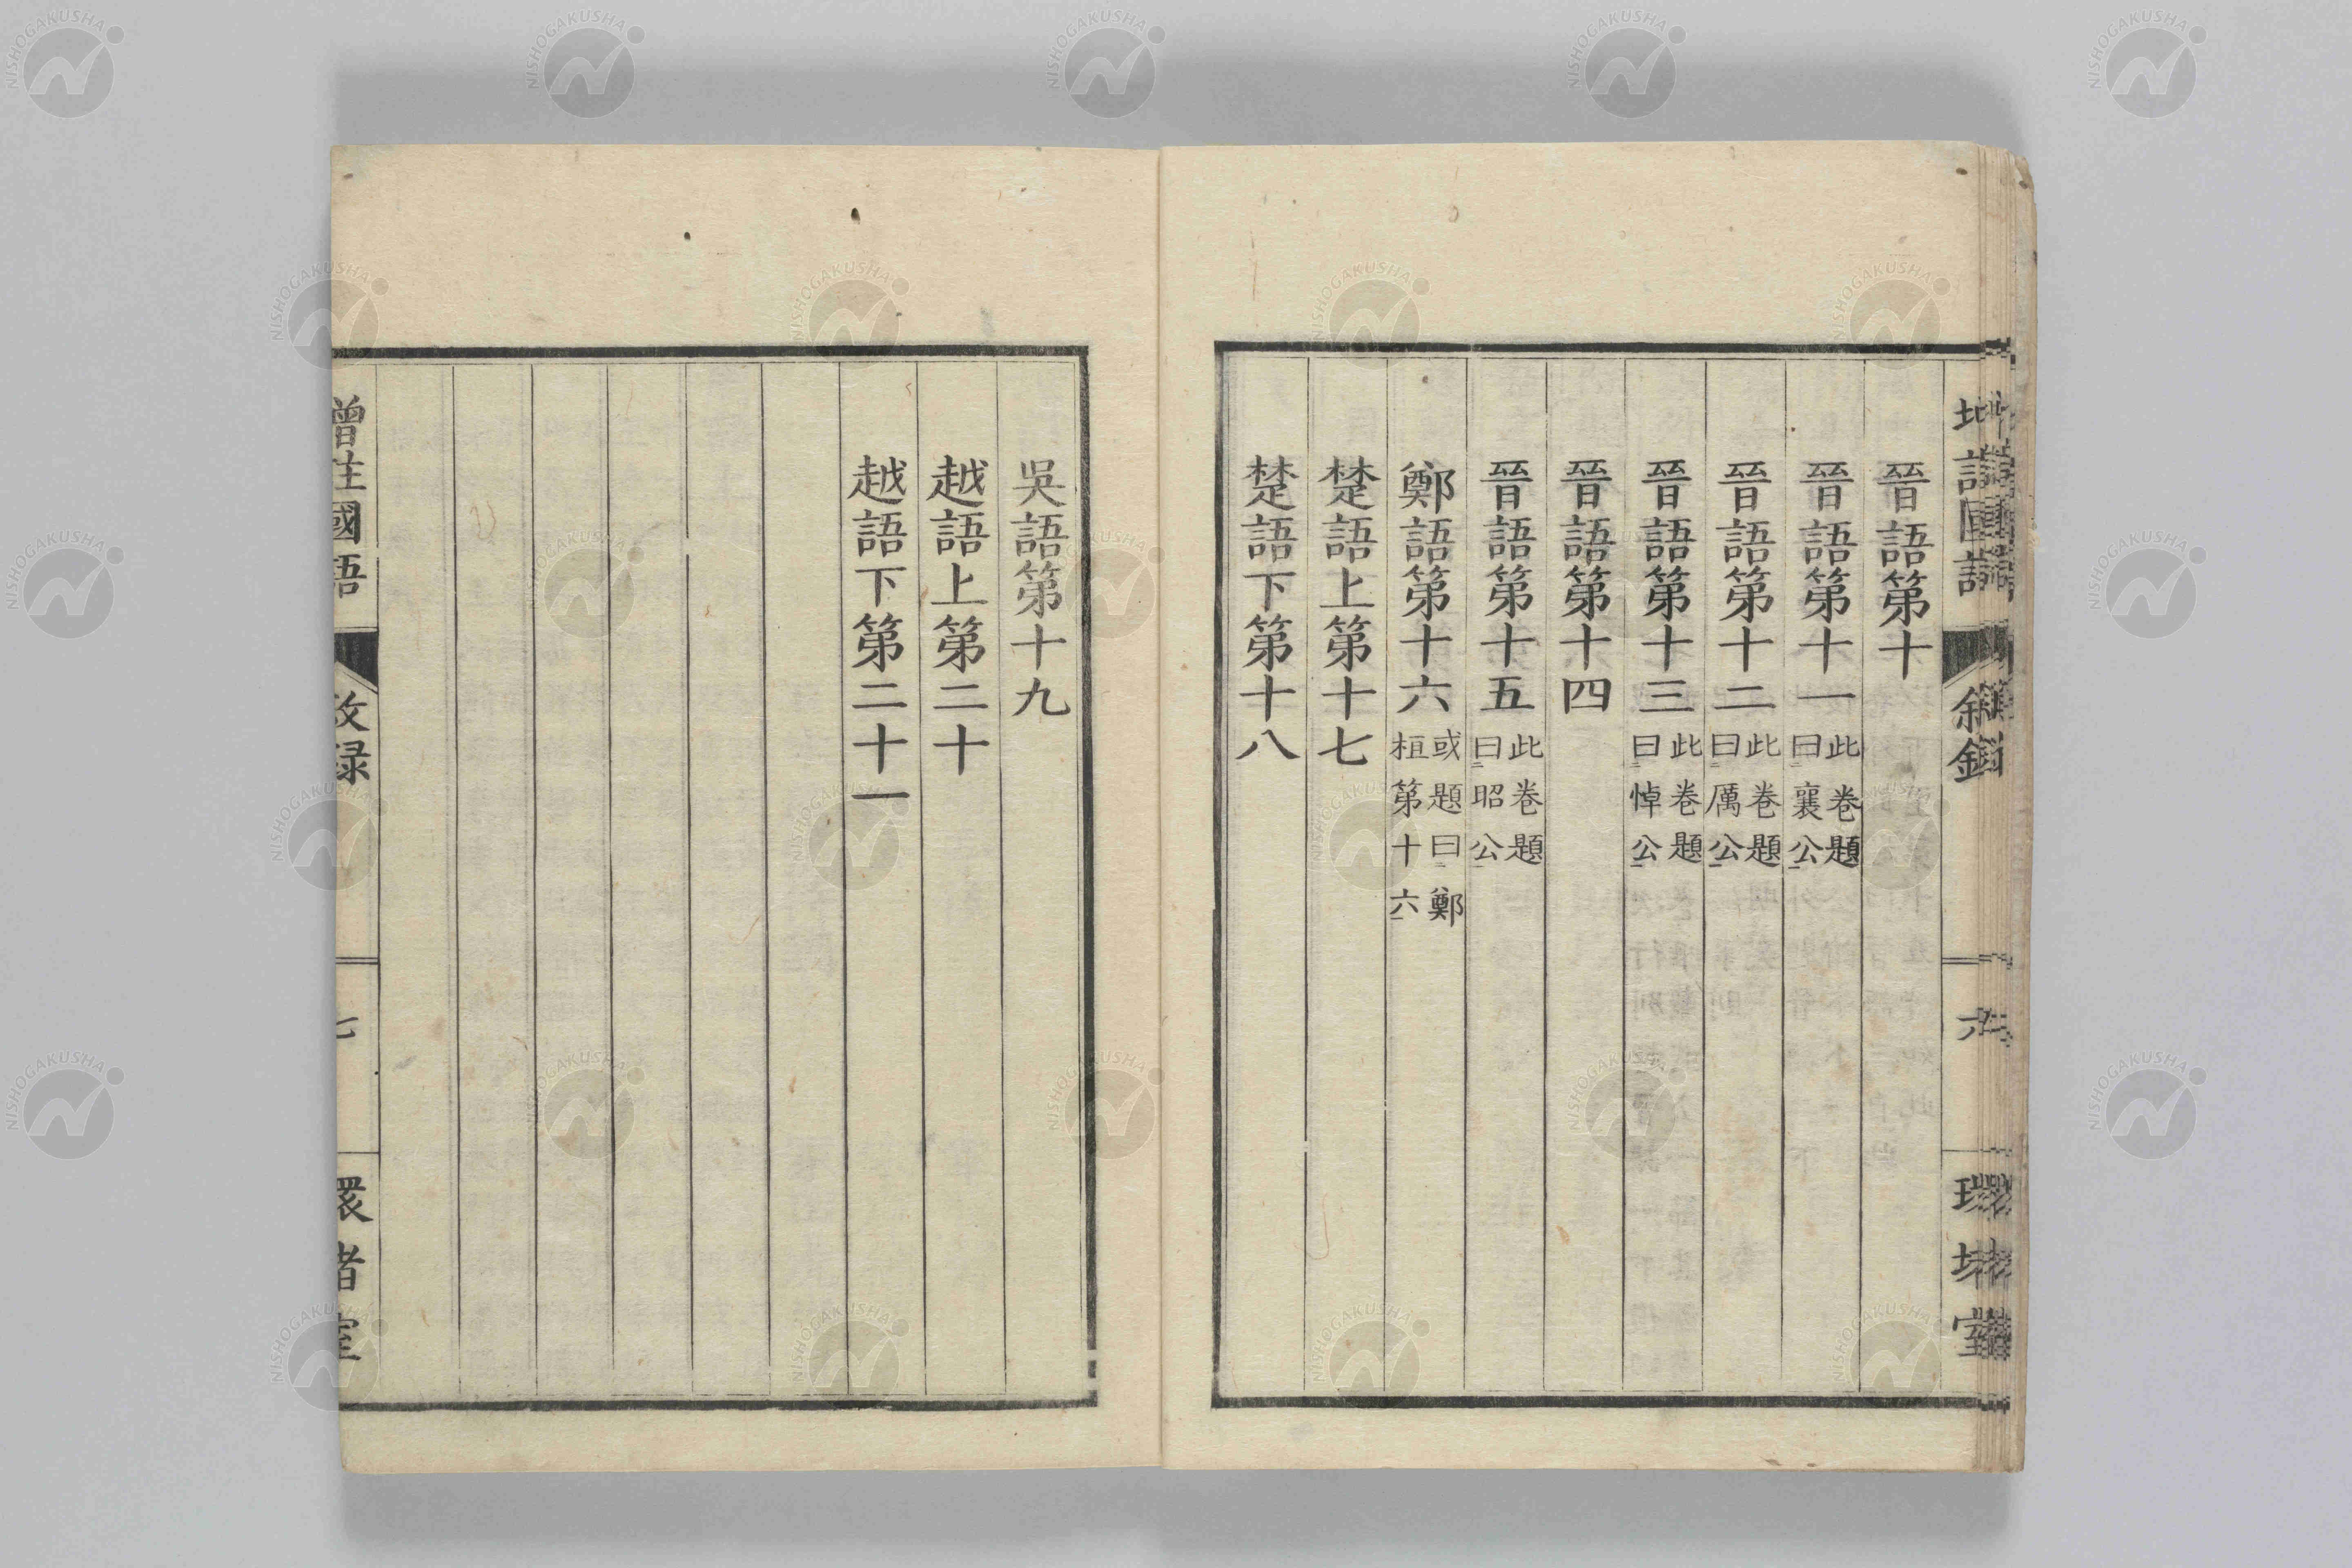 晉語第十
晉語第十一 此卷題曰襄公
晉語第十二 此卷題曰厲公
晉語第十三 此卷題曰悼公
晉語第十四
晉語第十五 此卷題曰昭公
鄭語第十六 或題曰鄭桓第十六
楚語上第十七
楚語下第十八
吳語第十九
越語上第二十
越語下第二十一
增注國語
七
NISHOGAKUSHA